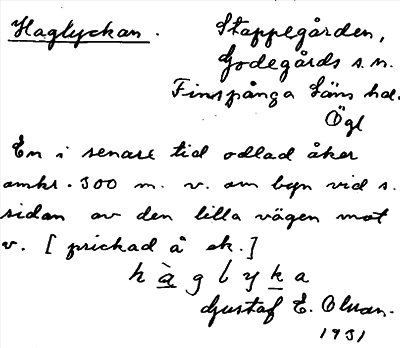 Haglyckan.
Stappegården,
Godegårds s.n.
Finspånga Läns hd.
Ögl
En i senare tid odlad åker
omkr. 300 m. v. om byn vid s.
sidan av den lilla vägen mot
v. [prickad å ek.]
hàglyka
Gustaf E. Olson.
1931